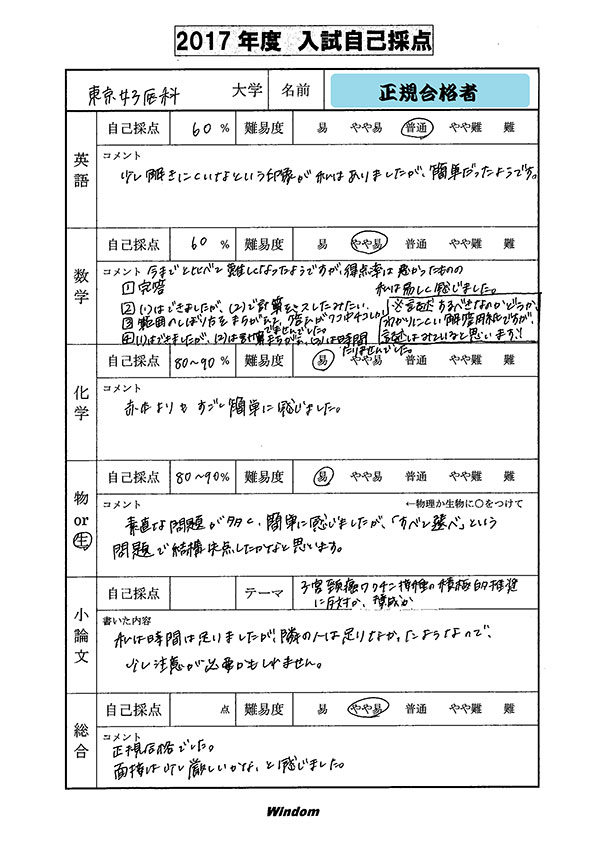 2017年度 入試自己採点
東京女子医科 大学 名前 正規合格者
英語
自己採点 60 % 難易度 易 やや易 普通 やや難 難
コメント
少し解きにくいなという印象が私はありましたが、簡単だったようです。
数学
自己採点 60 % 難易度 易 やや易 普通 やや難 難
コメント 今までと比べて難しくなったようですが、得点率は悪かったものの
私は易しく感じました。
① 完答
② (1)はできましたが、(2)で計算ミスしたみたい。
③ 範囲のしぼり方をまちがえて、答えが
でませんでした。
④ (1)はできましたが、(2)は計算まちがい、(3)は時間
たりませんでした。
※記述するべきなのかどうか、
わかりにくい解答用紙ですが、
記述はみていると思います!
化学
自己採点 80~90% 難易度 易 やや易 普通 やや難 難
コメント
赤本よりもすごく簡単に感じました。
物or生
自己採点 80~90% 難易度 易 やや易 普通 やや難 難
コメント ←物理か生物に○をつけて
素直な問題が多く、簡単に感じましたが、「すべて選べ」という
問題で結構失点したかなと思います。
小論文
自己採点 テーマ 子宮頸癌ワクチン接種の積極的推進
に反対か、賛成か
書いた内容
私は時間は足りましたが、隣の人は足りなかったようなので、
少し注意が必要かもしれません。
総合
自己採点 点 難易度 易 やや易 普通 やや難 難
コメント
正規合格でした。
面接は少し厳しいかな、と感じました。
Windom